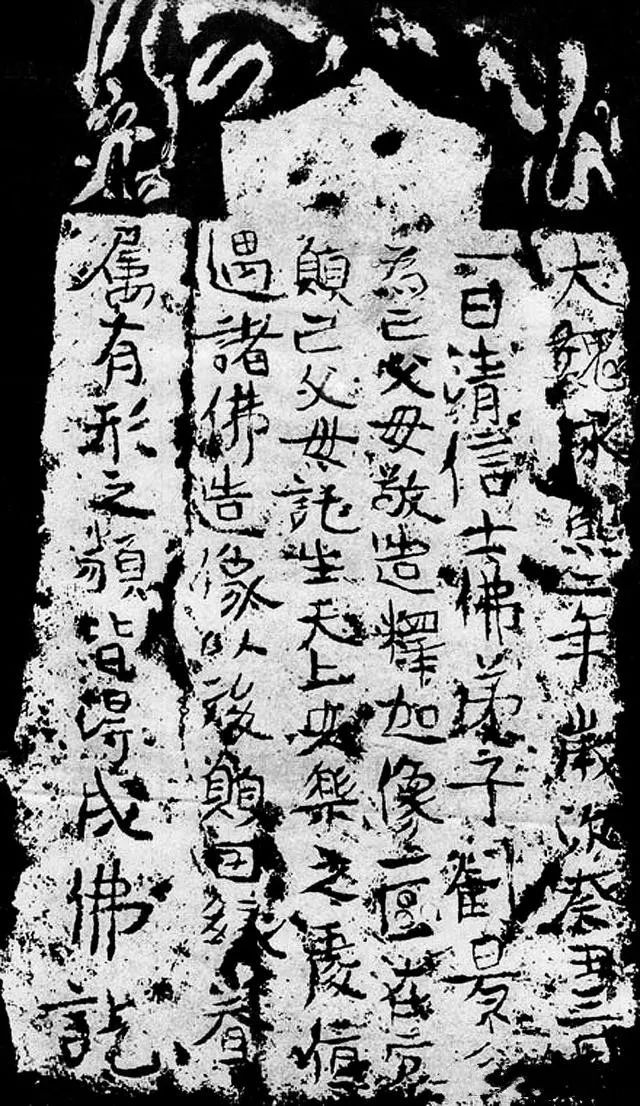 大魏永熙二年歲次癸丑三月
一日清信士佛弟子劉景
為己父母敬造釋加像一區在
願己父母託生天上安樂之處值
遇諸佛造像以後願因緣眷
属有形之類皆得成佛訖